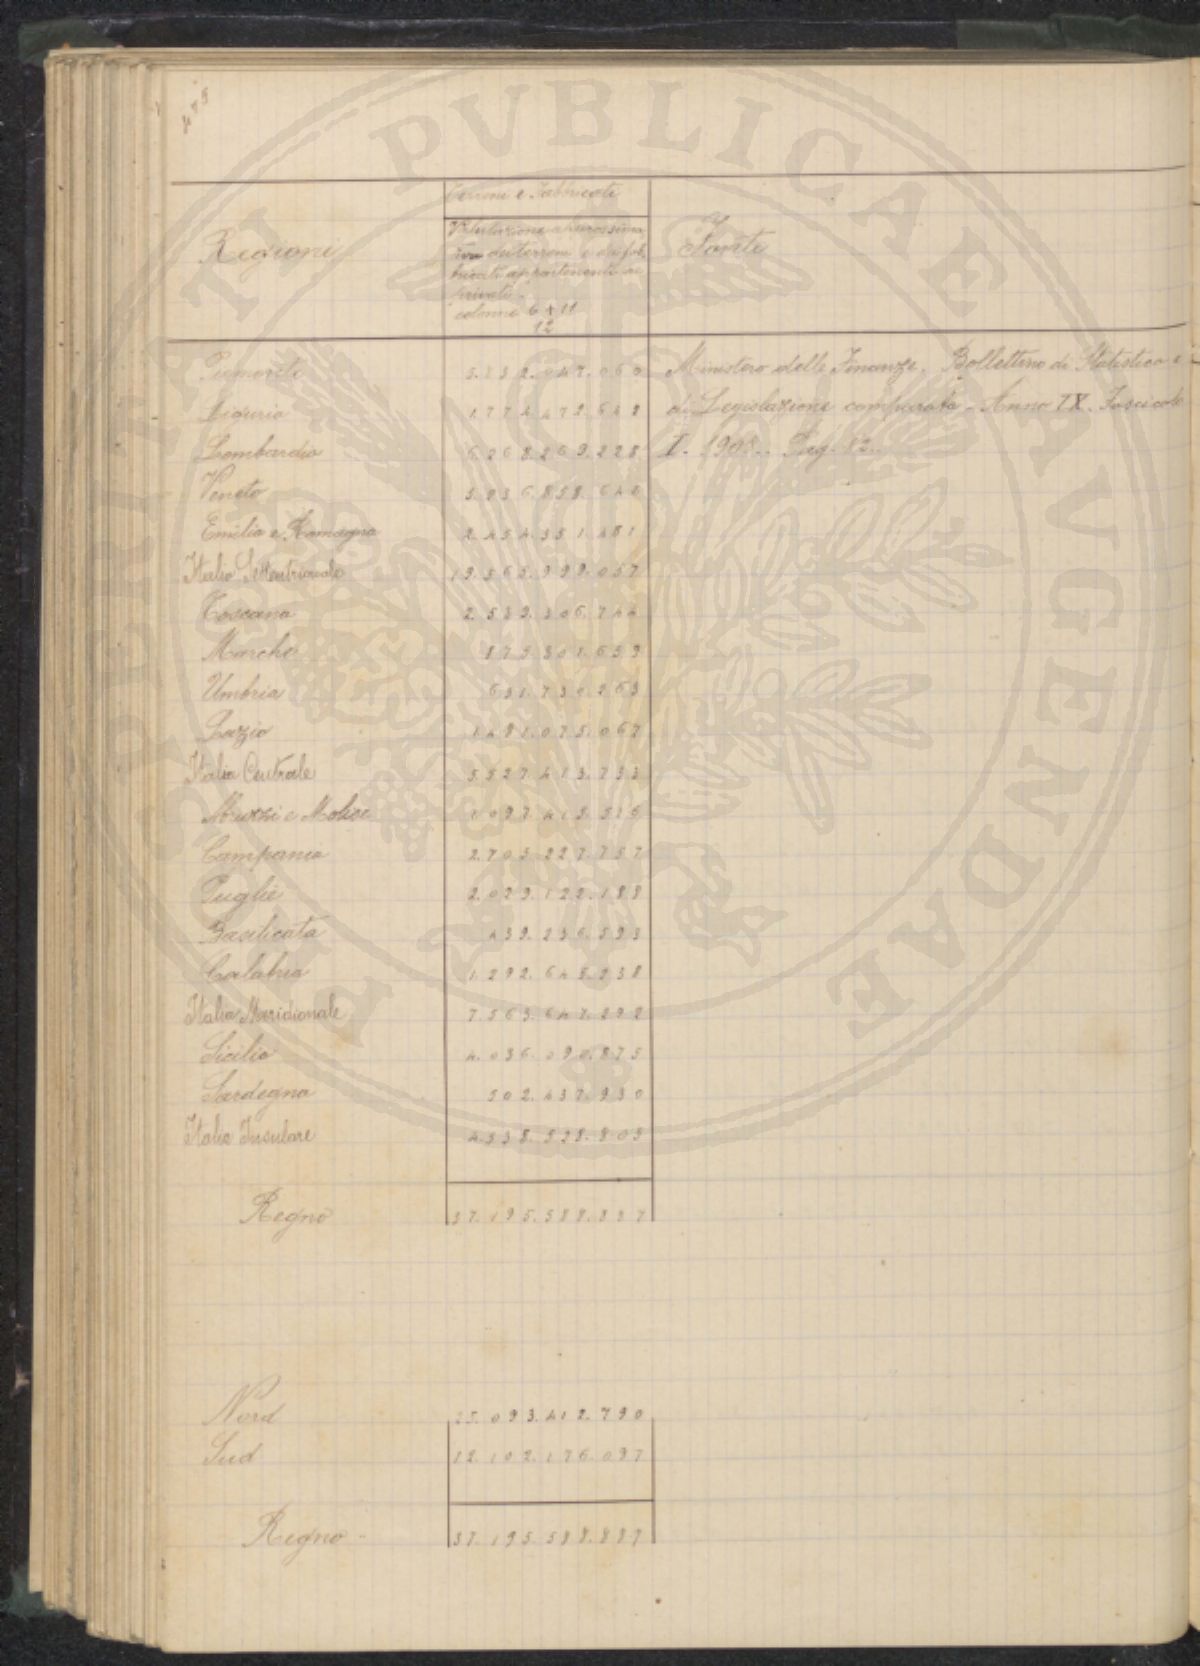 475
Regioni
Terreni e Fabbricati
Valutazione approssima
tiva dei terreni e dei fab
bricati appartenenti ai
privati.
colonne 6 + 11
12
Fonte
Piemonte 5.132.047.060
Liguria 1.774.472.648
Lombardia 6.268.269.228
Veneto 3.936.858.640
Emilia e Romagna 2.454.351.481
Italia Settentrionale 19.565.999.057
Toscana 2.539.306.744
Marche 875.301.659
Umbria 631.730.263
Lazio 1.481.075.067
Italia Centrale 5.527.413.733
Abruzzi e Molise 1.097.415.516
Campania 2.705.227.757
Puglie 2.029.122.188
Basilicata 439.236.593
Calabria 1.292.645.238
Italia Meridionale 7.563.647.292
Sicilia 4.036.090.875
Sardegna 502.437.930
Italia Insulare 4.538.528.805
Regno 37.195.588.887
Ministero delle Finanze. Bollettino di Statistica e
di Legislazione comparata - Anno IX. Fascicolo
I. Pag. 12.
Nord 25.093.412.790
Sud 12.102.176.097
Regno 37.195.588.887
PUBLICAE AVGENDAE